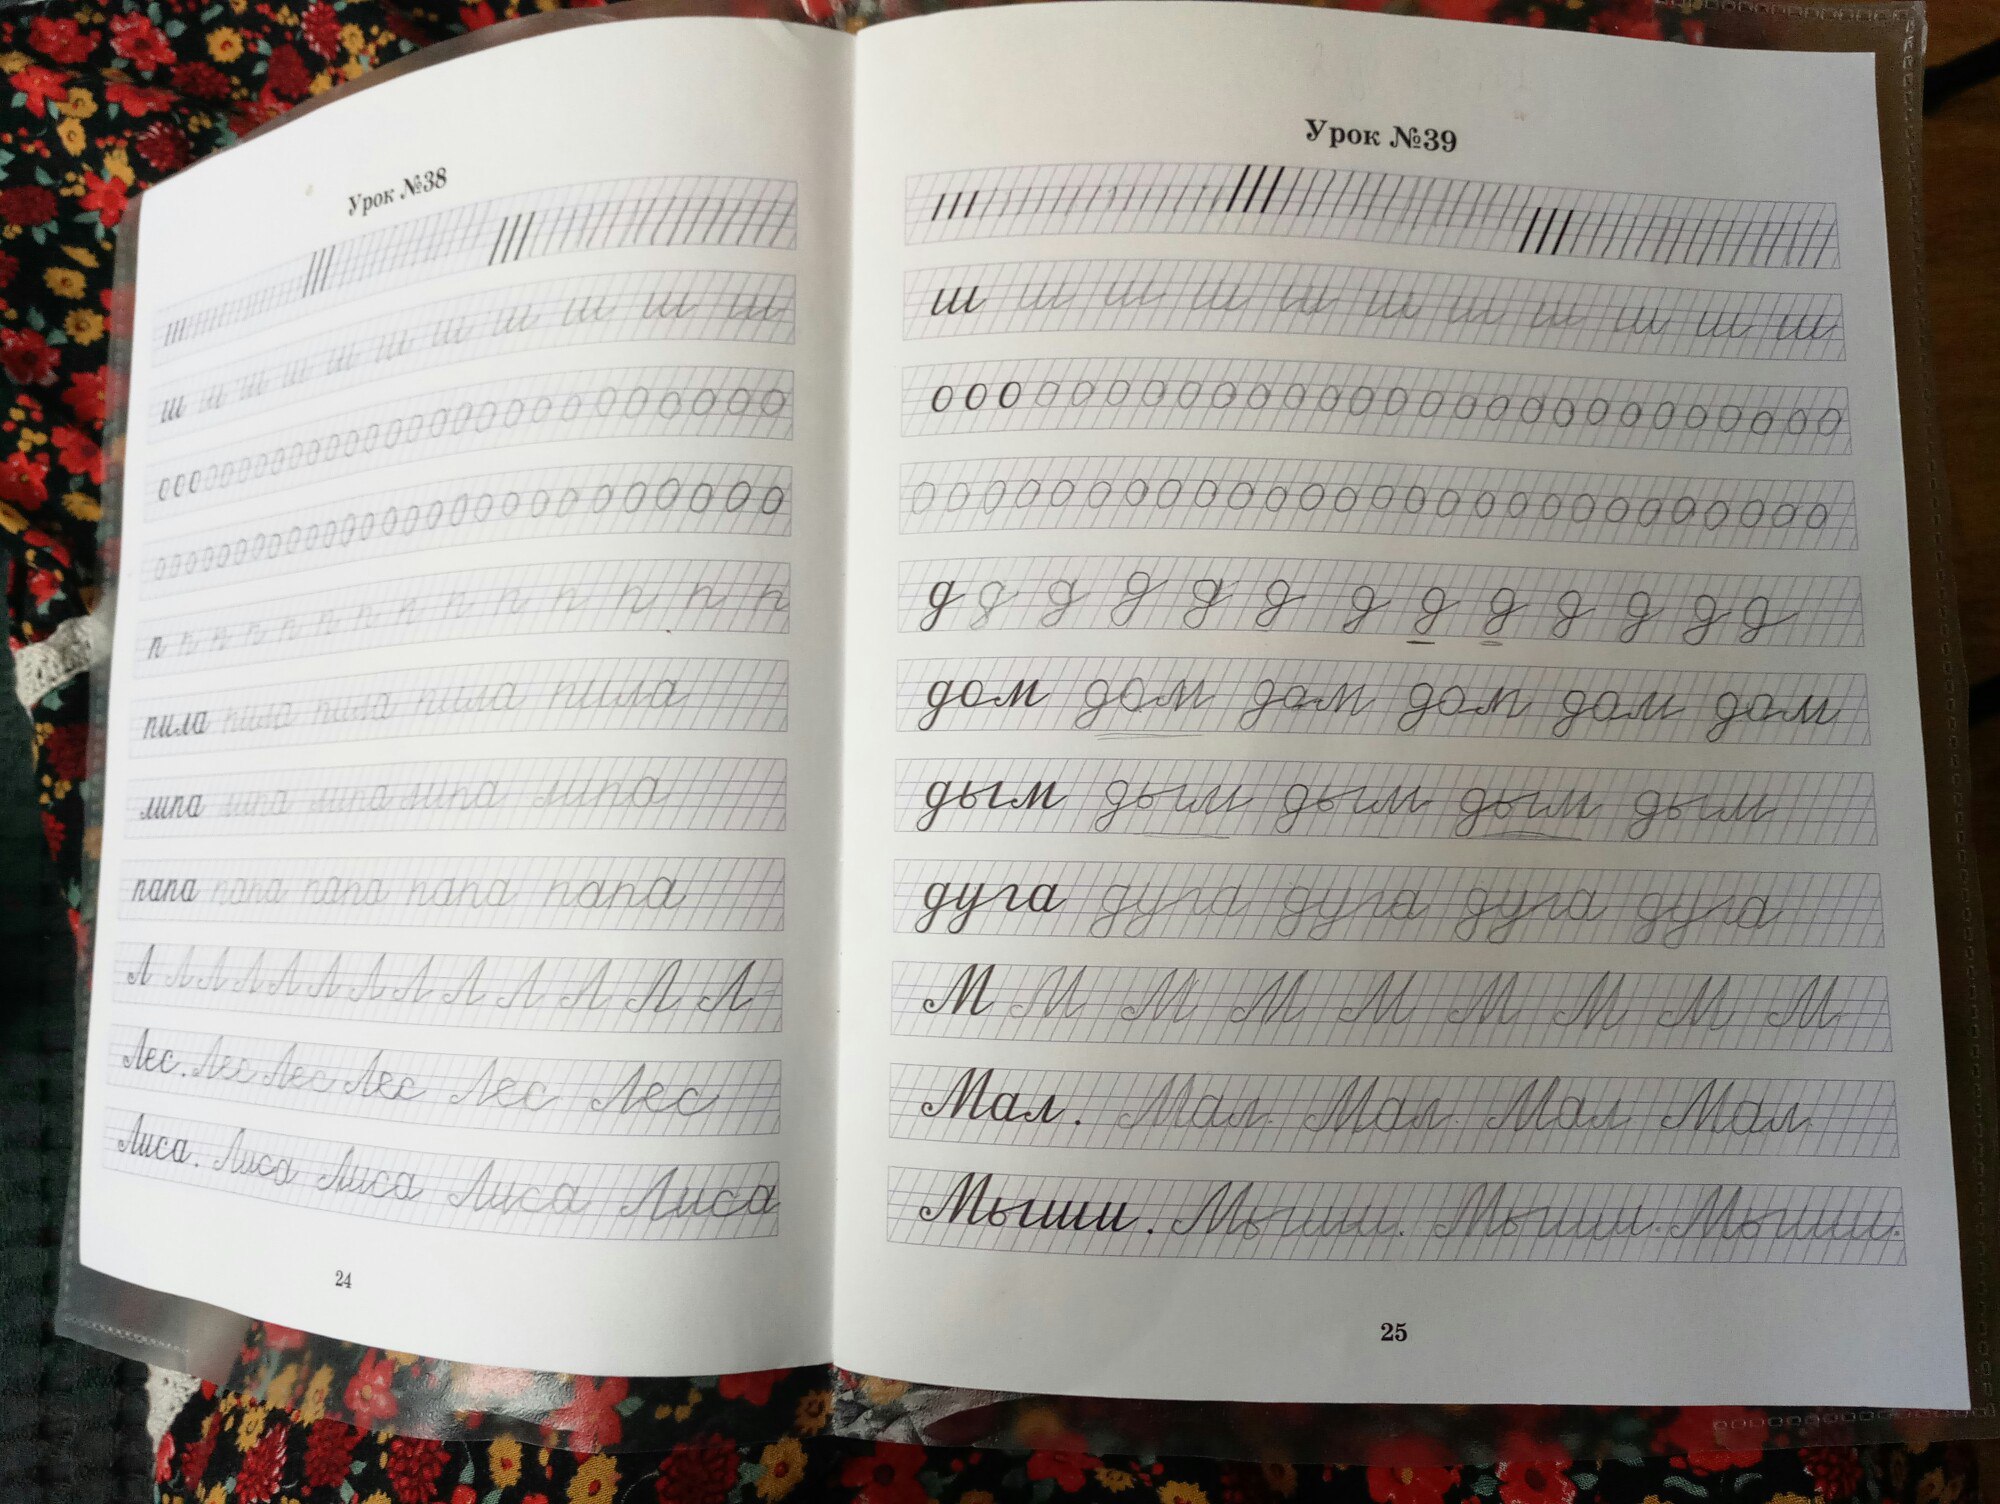 Урок №38
ш ш ш ш ш ш ш ш ш ш ш ш
о о о о о о о о о о о о о о о о о о о о о о о о о о о
о о о о о о о о о о о о о о о о о о о о о о о о о о
п п п п п п п п п п п п п п
пила пила пила пила пила
липа липа липа липа липа
папа папа папа папа папа
Л Л Л Л Л Л Л Л Л Л Л Л Л
Лес. Лес Лес Лес Лес Лес
Лиса. Лиса Лиса Лиса Лиса
24
Урок №39
ш ш ш ш ш ш ш ш ш ш ш
о о о о о о о о о о о о о о о о о о о о о о о о о о
о о о о о о о о о о о о о о о о о о о о о о о о о о
д д д д д д д д д д д д д
дом дом дом дом дом дом
дым дым дым дым дым
дуга дуга дуга дуга дуга
М М М М М М М М М
Мал. Мал. Мал. Мал. Мал.
Мыши. Мыши. Мыши. Мыши.
25